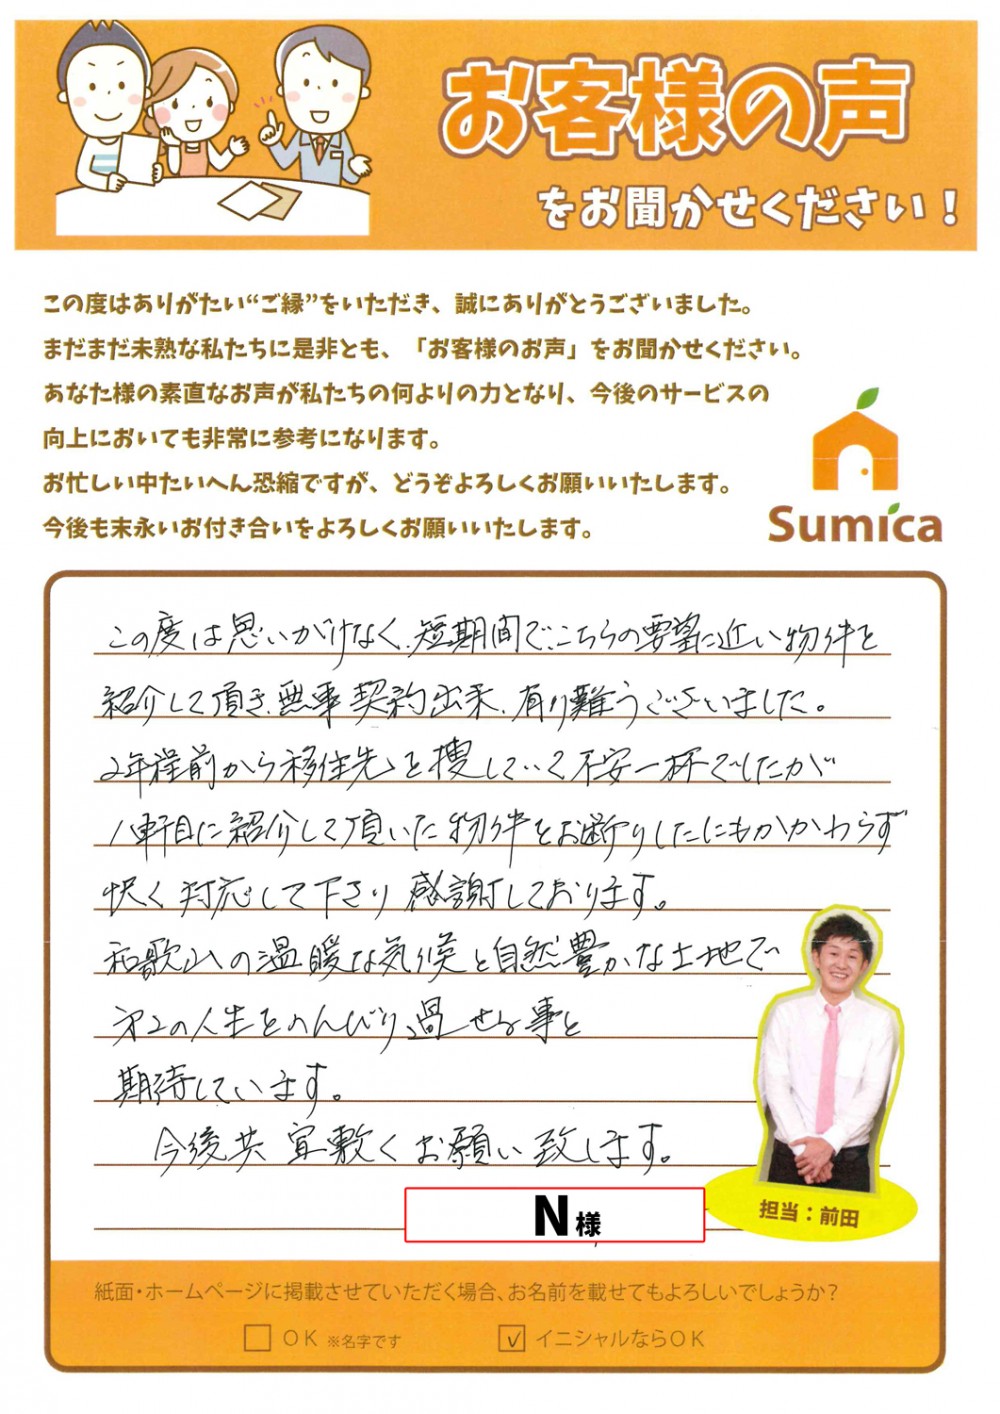 お客様の声
をお聞かせください！
この度はありがたい“ご縁”をいただき、誠にありがとうございました。
まだまだ未熟な私たちに是非とも、「お客様のお声」をお聞かせください。
あなた様の素直なお声が私たちの何よりの力となり、今後のサービスの
向上においても非常に参考になります。
お忙しい中たいへん恐縮ですが、どうぞよろしくお願いいたします。
今後も末永いお付き合いをよろしくお願いいたします。
Sumica
この度は思いがけなく、短期間で、こちらの要望に近い物件を
紹介して頂き、無事契約出来、有り難うございました。
2年程前から移住先を捜していて不安一杯でしたが
1軒目に紹介して頂いた物件をお断りしたにもかかわらず
快く対応して下さり感謝しております。
和歌山の温暖な気候と自然豊かな土地で
第2の人生をのんびり過せる事を
期待しています。
今後共宜敷くお願い致します。
N様
担当：前田
紙面・ホームページに掲載させていただく場合、お名前を載せてもよろしいでしょうか？
OK ※名字です
イニシャルならOK